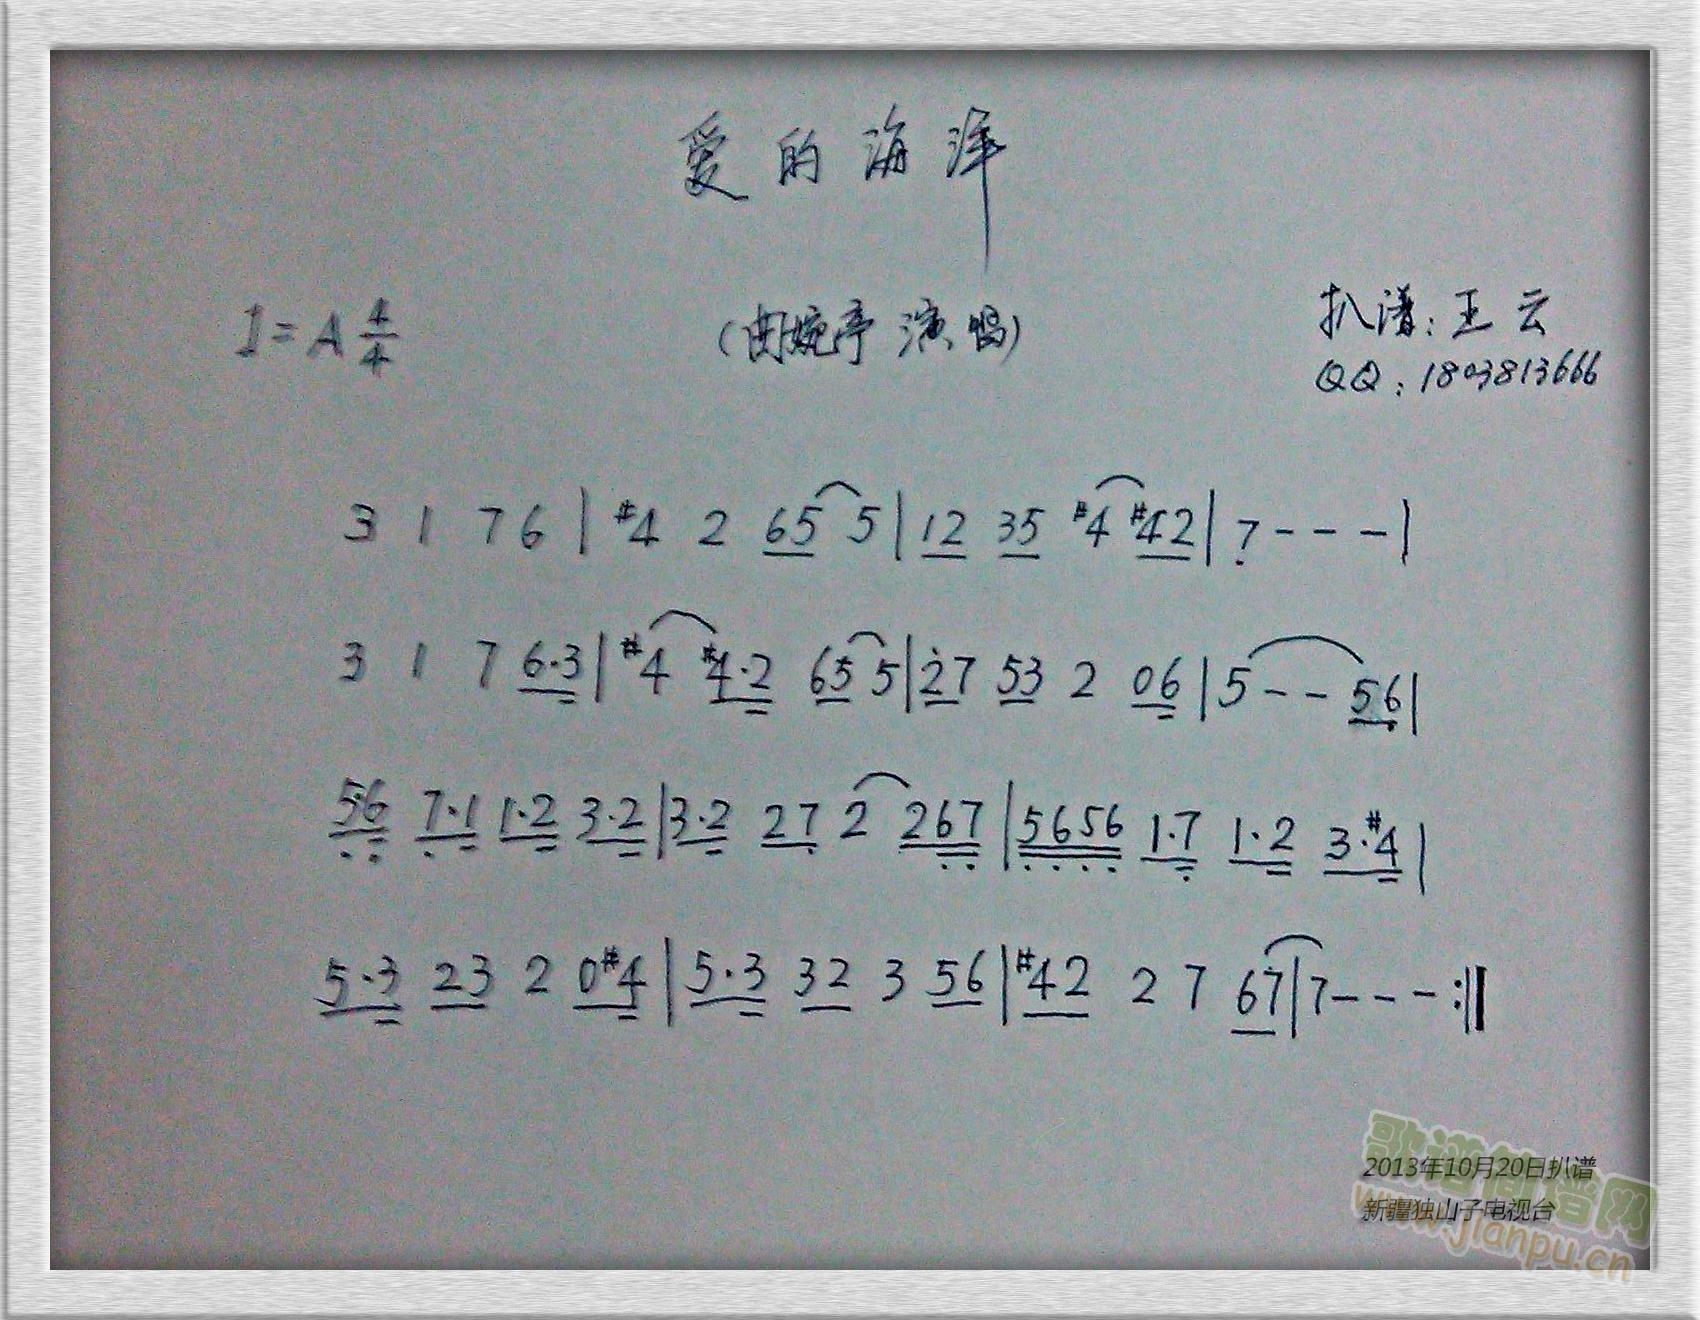 爱的海洋
1=A 4/4
(曲婉亭 演唱)
扒谱:王云
QQ:1803813666
3 1 7 6 | #4 2 65 5 | 12 35 #4 #42 | 7 - - - |
3 1 7 6·3 | #4 #4·2 65 5 | 27 53 2 06 | 5 - - 56 |
5·6 7·1 1·2 3·2 | 3·2 27 2 267 | 5656 1·7 1·2 3·#4 |
5·3 23 2 0#4 | 5·3 32 3 56 | #42 2 7 67 | 7 - - - :||
歌谱简谱网
2013年10月20日扒谱
新疆独山子电视台
www.jianpu.cn